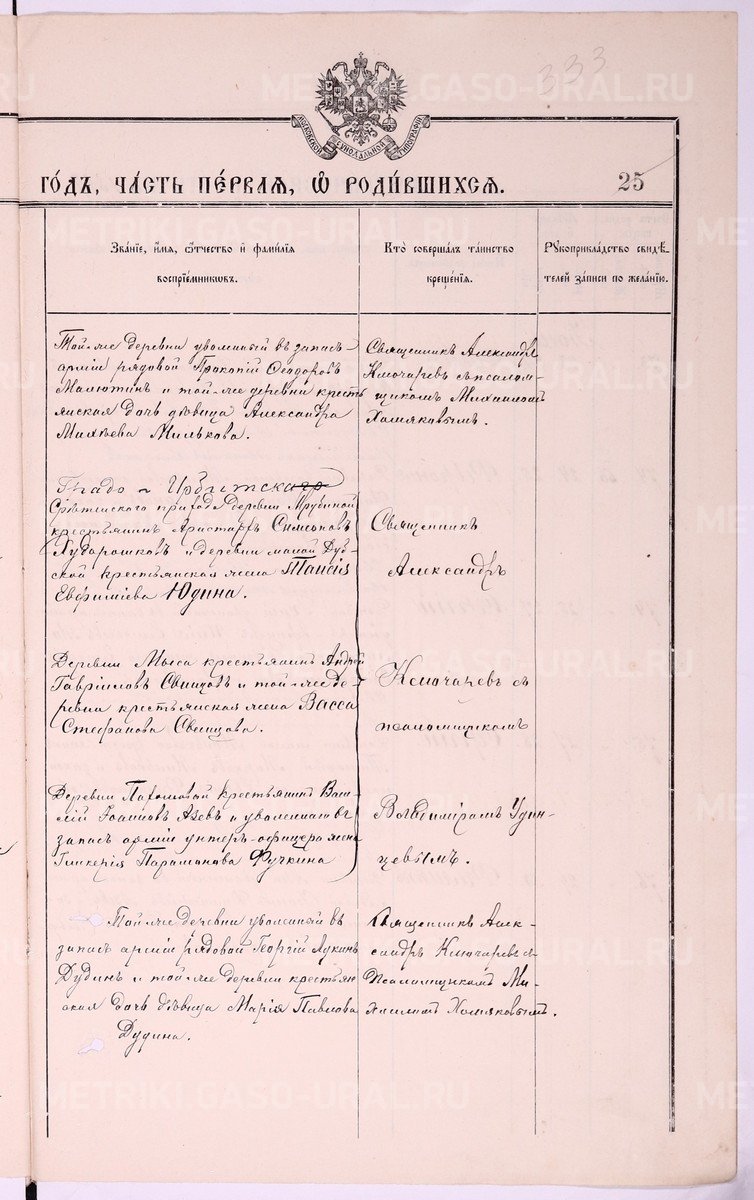 333
МОСКОВСКОЙ СѴНОДАЛЬНОЙ ТИПОГРАФІИ
ГО́ДЪ, ЧА́СТЬ ПЕ́РВАѦ, Ѡ҆ РОДИ́ВШИХСѦ.
25
Зва́нїе, и҆́мѧ, ѻ҆́тчество и҆ фамѝлїѧ
воспрїе́мниковъ.
Кто̀ соверша́лъ та́инство
креще́нїѧ.
Рꙋкоприкла́дство свидѣ́-
телей за́писи по жела́нїю.
Той-же деревни уволенный въ запасъ
арміи рядовой Прокопій Ѳеодоровъ
Малютинъ и той-же деревни кресть
янская дочь дѣвица Александра
Михѣева Милькова.
Священникъ Александръ
Ключаревъ съ псалом-
щикомъ Михаиломъ
Хомяковымъ.
Градо - Ирбитскаго
Срѣтенскаго прихода деревни
крестьянинъ Аристархъ Симеоновъ
Худорошковъ и деревни малой Дуб-
ской крестьянская жена Таисія
Евфиміева Юдина.
Деревни Мыса крестьянинъ Андрей
Гавріиловъ Свинцовъ и той-же де-
ревни крестьянская жена Васса
Стефанова Свинцова.
Деревни Пахомовой крестьянинъ Васи-
лій Іоанновъ Азевъ и уволеннаго въ
запасъ арміи унтеръ-офицера жена
Гликерія Парамонова Фучкина
Священникъ
Александръ
Ключаревъ съ
псаломщикомъ
Владиміромъ Удин-
цевымъ.
Той-же деревни уволенный въ
запасъ арміи рядовой Георгій
Дудинъ и той-же деревни крестьян
ская дочь дѣвица Марія Павлова
Дудина.
Священникъ Алек-
сандръ Ключаревъ съ
Псаломщикомъ Ми-
хаиломъ Хомяковымъ.
METRIKI.GASO-URAL.RU